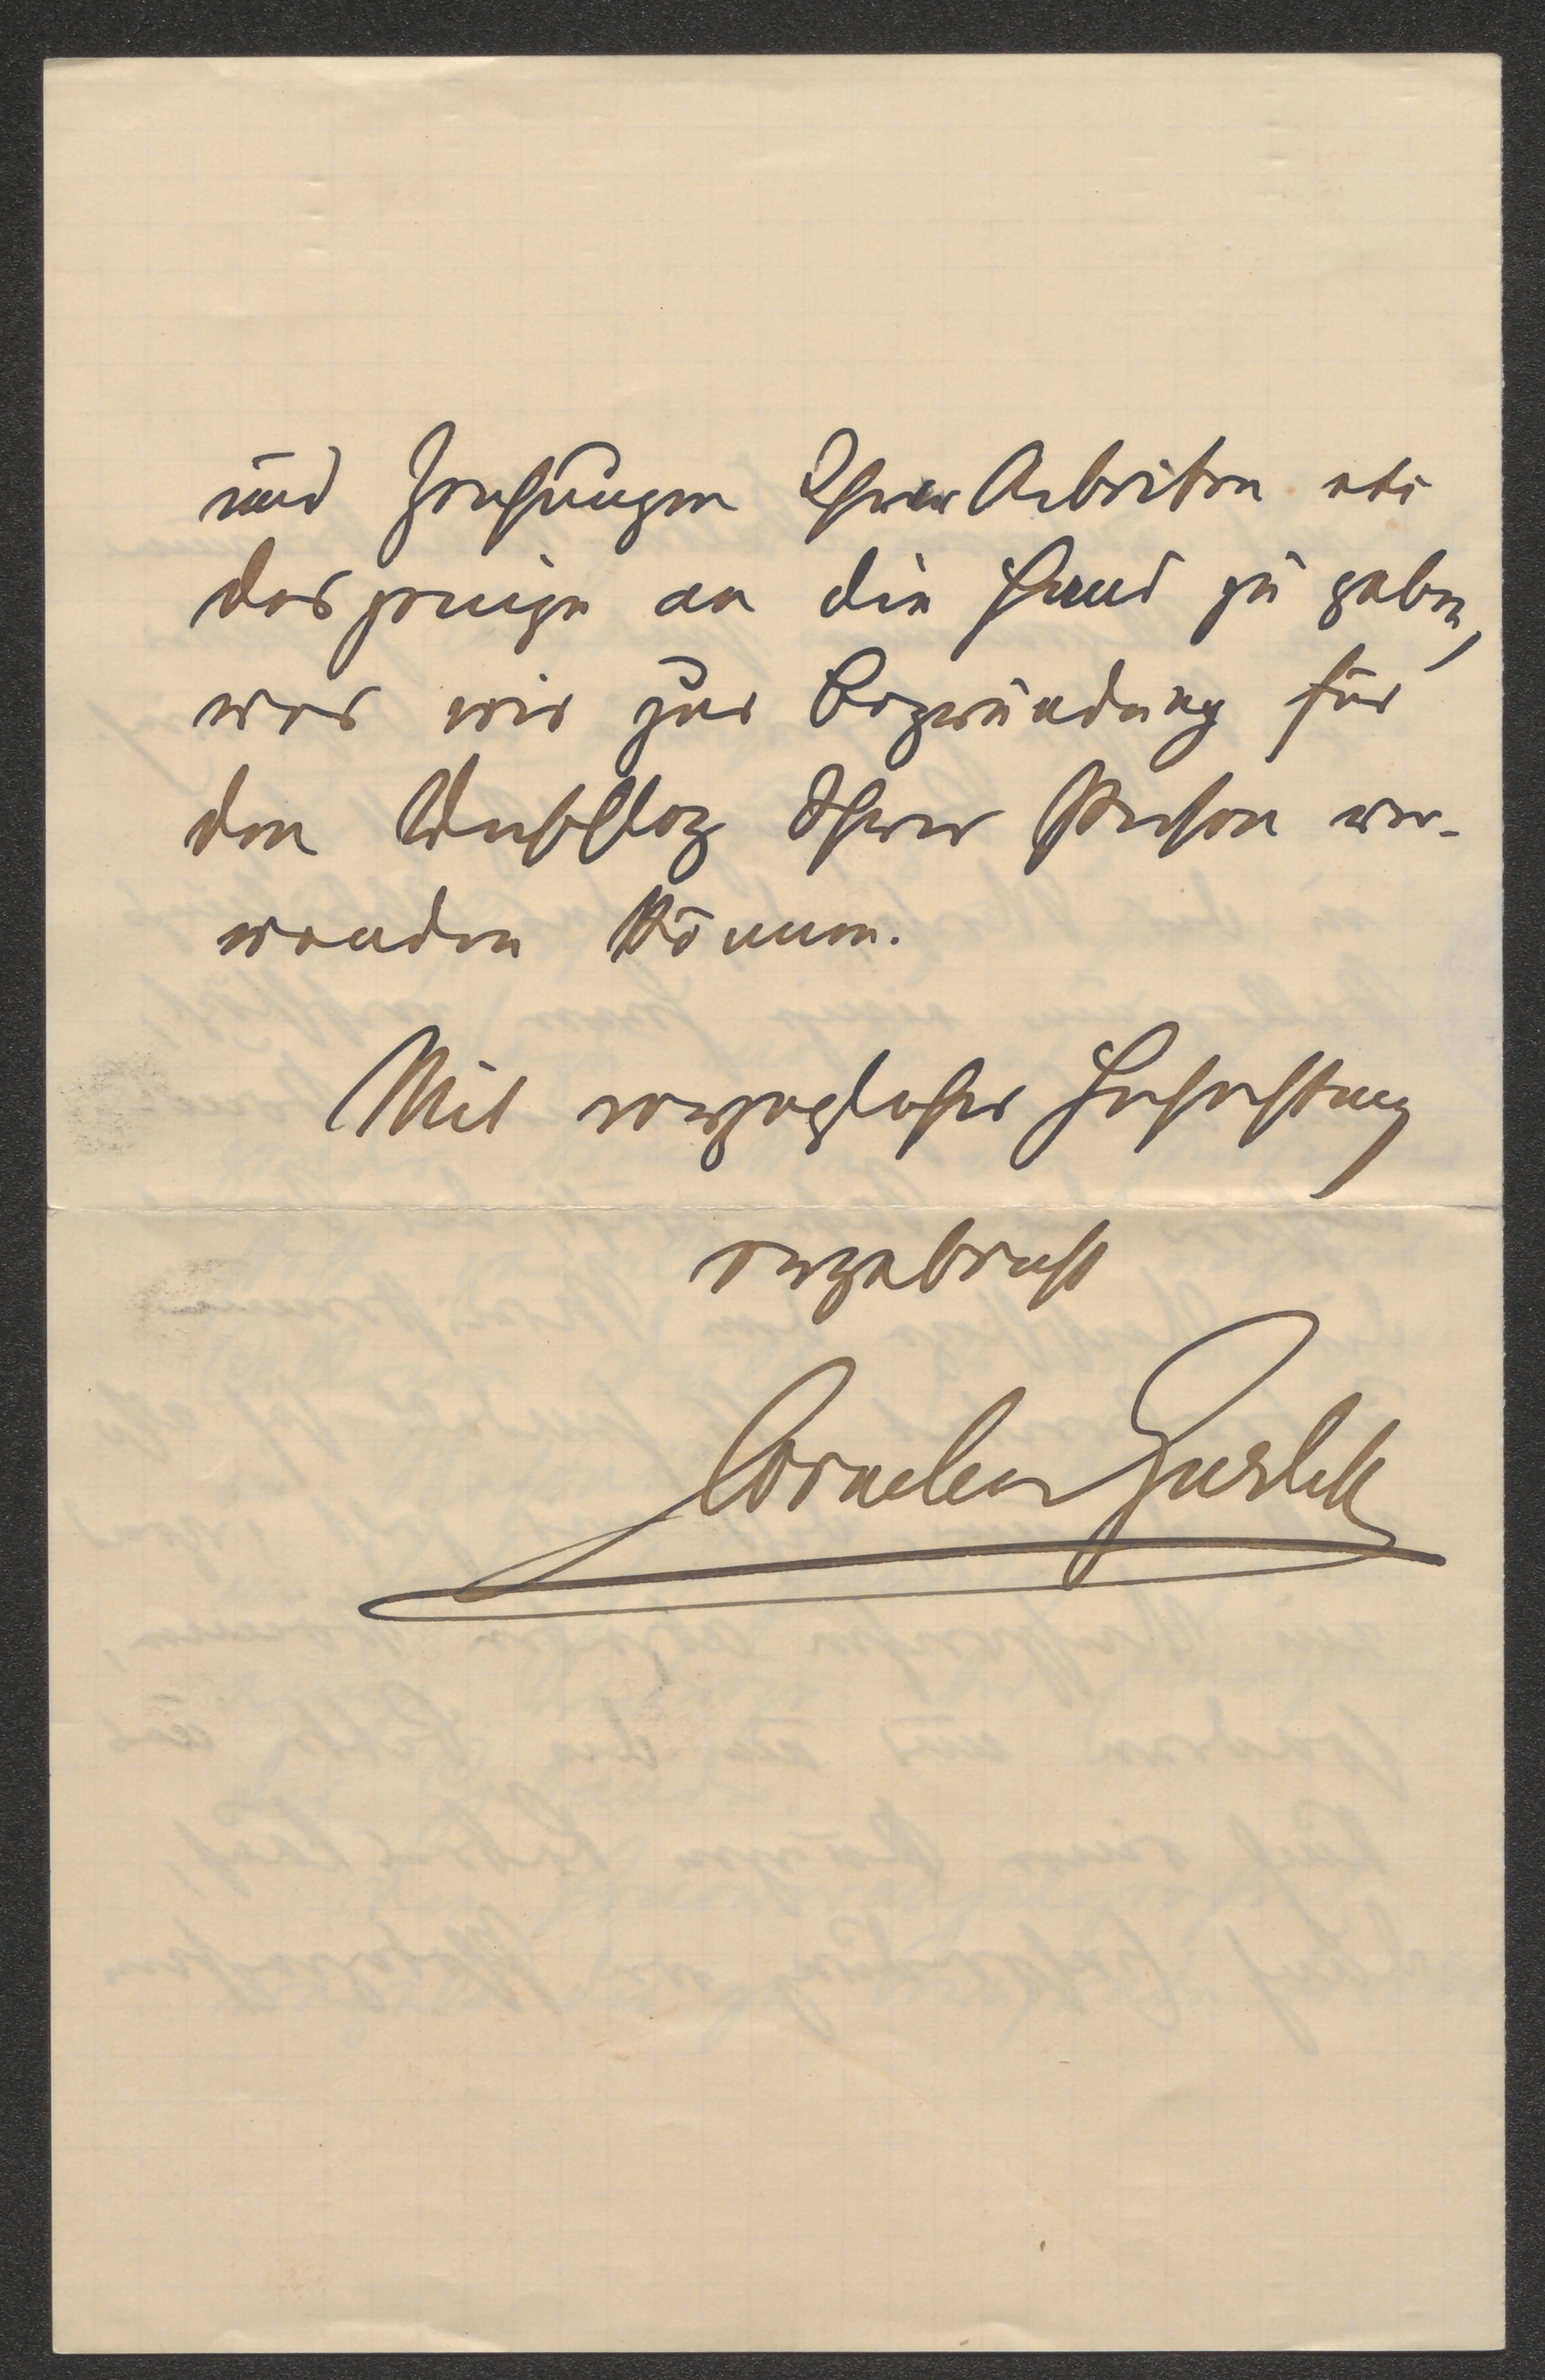 und Zeichnungen Ihrer Arbeiten etc
dasjenige an die Hand zu geben,
was wir zur Begründung für
den Vorschlag Ihrer Person ver-
wenden können.
Mit vorzüglicher Hochachtung
ergebenst
Cornelius Gurlitt